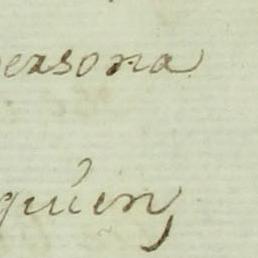 persona
quien,